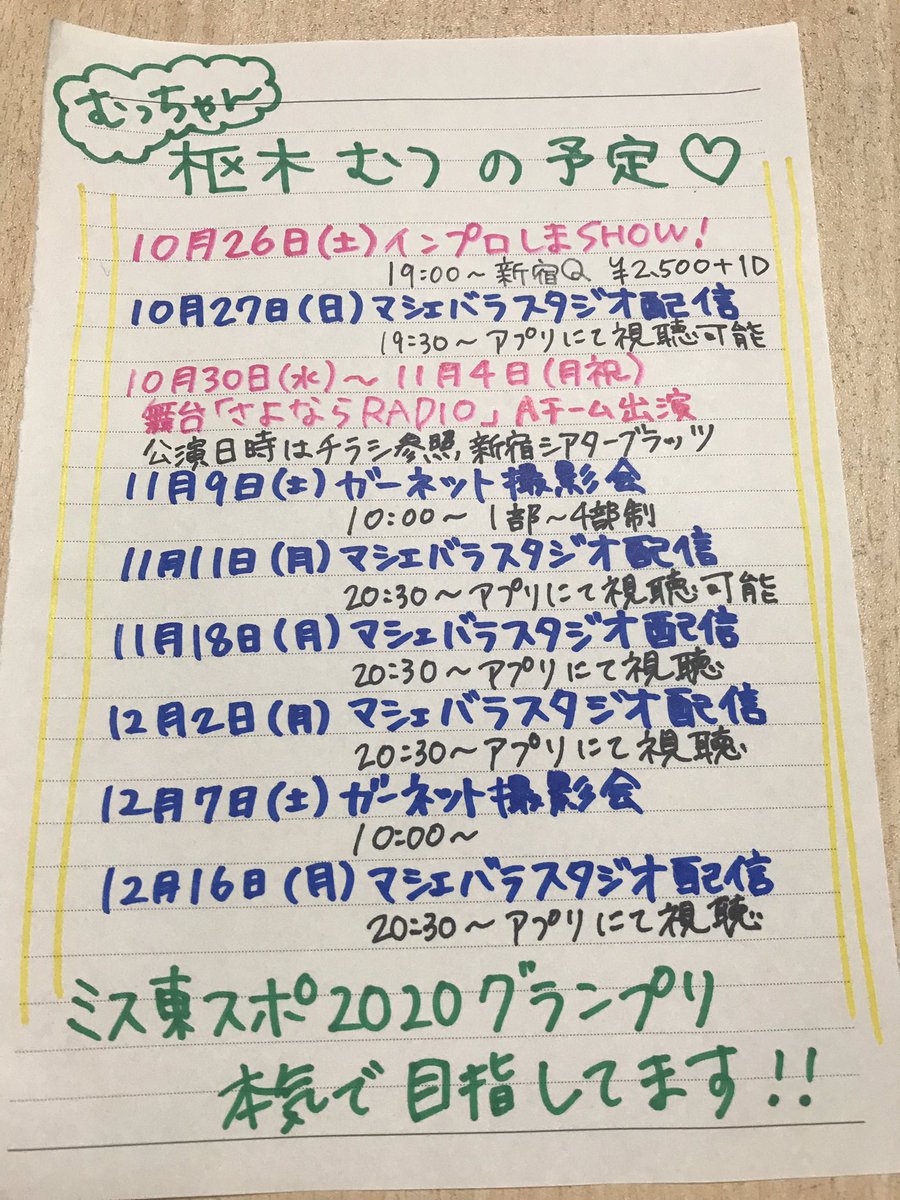 むっちゃん
枢木むつの予定♡
10月26日(土)インプロしまSHOW!
19:00〜新宿Q ¥2,500+1D
10月27日(日)マシェバラスタジオ配信
19:30〜アプリにて視聴可能
10月30日(水)〜11月4日(月祝)
舞台「さよならRADIO」Aチーム出演
公演日時はチラシ参照,新宿シアターブラッツ
11月9日(土)ガーネット撮影会
10:00〜1部〜4部制
11月11日(月)マシェバラスタジオ配信
20:30〜アプリにて視聴可能
11月18日(月)マシェバラスタジオ配信
20:30〜アプリにて視聴
12月2日(月)マシェバラスタジオ配信
20:30〜アプリにて視聴
12月7日(土)ガーネット撮影会
10:00〜
12月16日(月)マシェバラスタジオ配信
20:30〜アプリにて視聴
ミス東スポ2020グランプリ
本気で目指してます!!